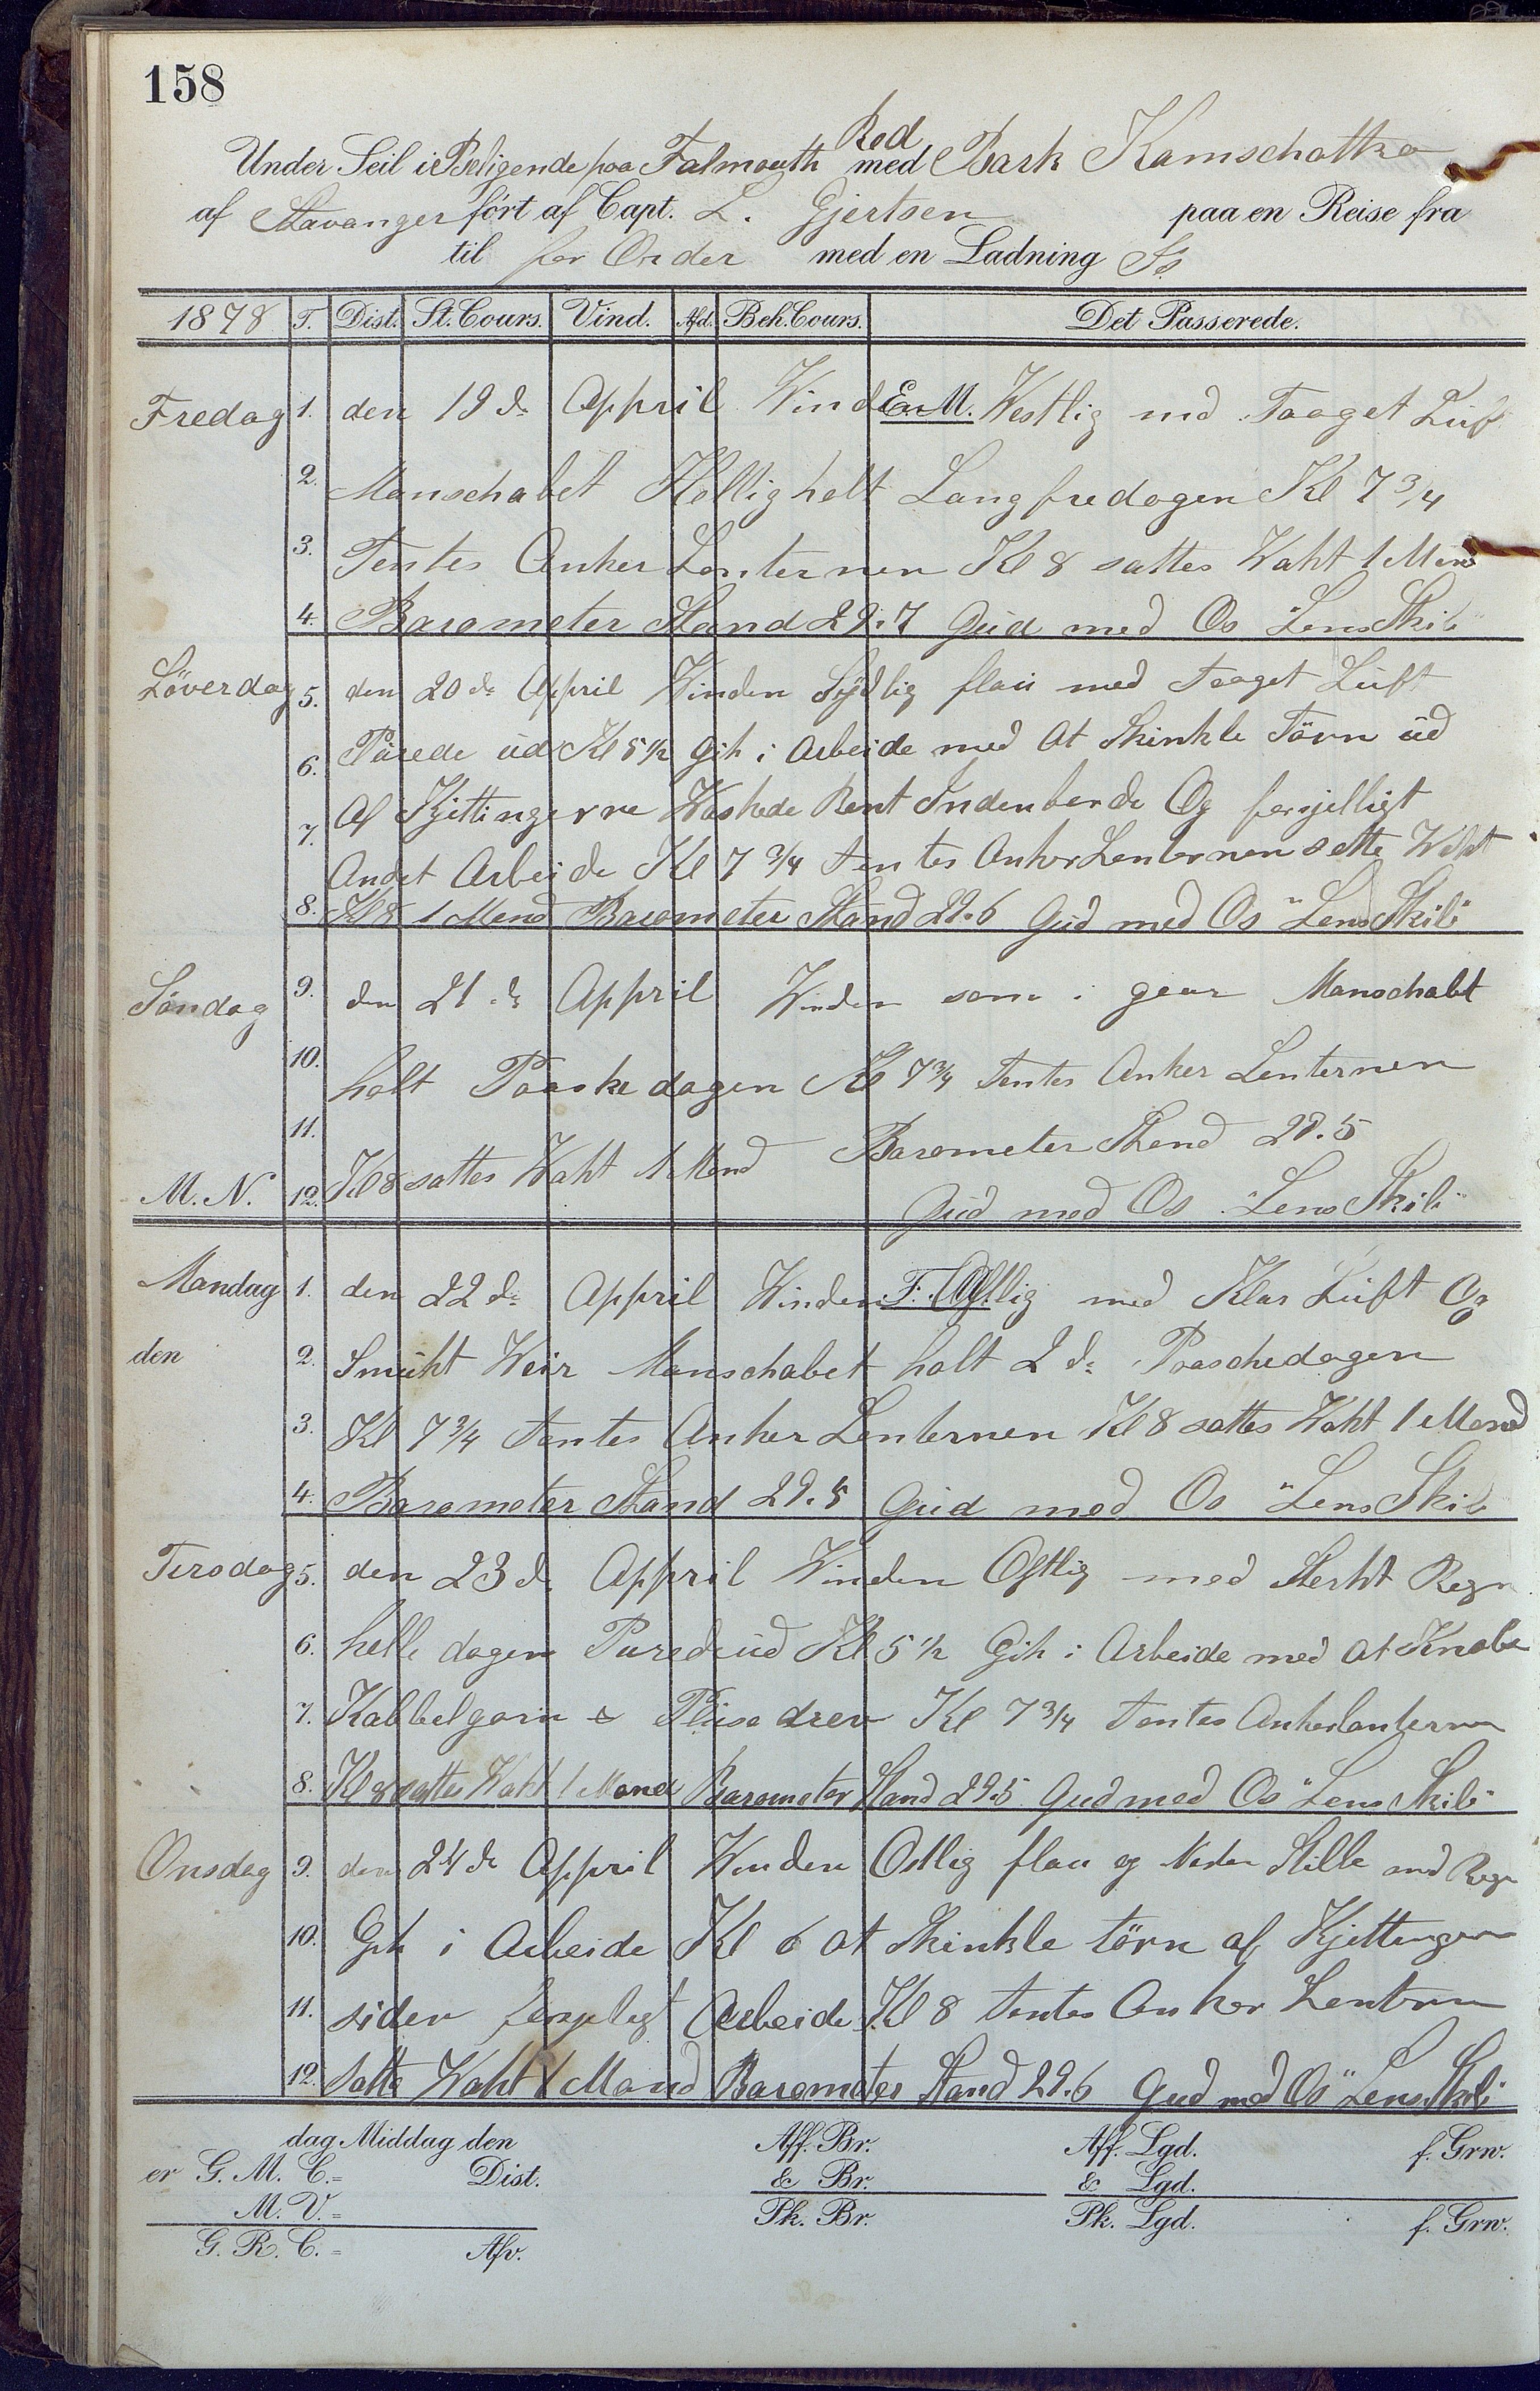 158
Under Seil i Beligende paa Falmouth Red med Bark Kamschatka
af Stavanger ført af Capt. L. Gjertsen paa en Reise fra
til for Order med en Ladning
1878 T. Dist. St. Cours. Vind. Afd. Beh. Cours. Det Passerede.
Fredag 1. den 19 de Appril Wind E.M. Westlig med Taaget Lüft
2. Manschabet Hellig helt Langfredagen Kl 7 3/4
3. Tentes Anker Lanternen Kl 8 sattes Waht 1 Mand
4. Barometer Stand 29.7 Güd med Os "Lens Skib"
Löverdag 5. den 20 de Appril Winden Sÿdlig flaü med Taaget Lüft
6. Pürede üd Kl 5 1/2 Gik i Arbeide med At Skinkle Törn üd
7. Af Kjettingerne Waskede Rent Indenborde Og forsjelligt
Andet Arbeide Kl 7 3/4 tentes Anker Lanternen satte Waht
8. Kl 8 1 Mand Barometer Stand 29.6 Güd med Os "Lens Skib"
Söndag 9. den 21 de Appril Winden som i gaar Manschabt
10. holt Paaske dagen Kl 7 3/4 Tentes Anker Lanternen
11. Barometer Stand 29.5
M. N. 12. Kl 8 sattes Waht 1 Mand
Güd med Os "Lens Skib"
Mandag 1. den 22 de Appril Winden F. M. Ostlig med Klar Lüft Og
den 2. Smükt Weir Manschabet holt 2 de Paaschedagen
3. Kl 7 3/4 tentes Anker Lanternen Kl 8 sattes Waht 1 Mand
4. Barometer Stand 29.5 Güd med Os "Lens Skib
Tirsdag 5. den 23 de Appril Winden Ostlig med Sterkt Regn
6. helle dagen Purede üd Kl 5 1/2 Gik i Arbeide med At Knabe
7. Kabbelgarn & Plüse drev Kl 7 3/4 tentes Ankerlanternen
8. Kl 8 sattes Waht 1 Mand Barometer Stand 29.5 Gud med Os "Lens Skib"
Onsdag 9. den 24 de Appril Winden Ostlig flau og Neden Stille med Regn
10. Gik i Arbeide Kl 6 at Skinkle törn af Kjettingen
11. siden forsjeligt Arbeide Kl 8 tentes Anker Lantern
12. Satte Waht 1 Mand Barometer Stand 29.6 Gud med Os "Lens Skib"
dag Middag den Aff. Br. Aff. Lgd. f. Grw.
er G. M. C. = Dist. & Br. & Lgd.
M. V. = Pk. Br. Pk. Lgd. f. Grw.
G. R. C. = Afv.